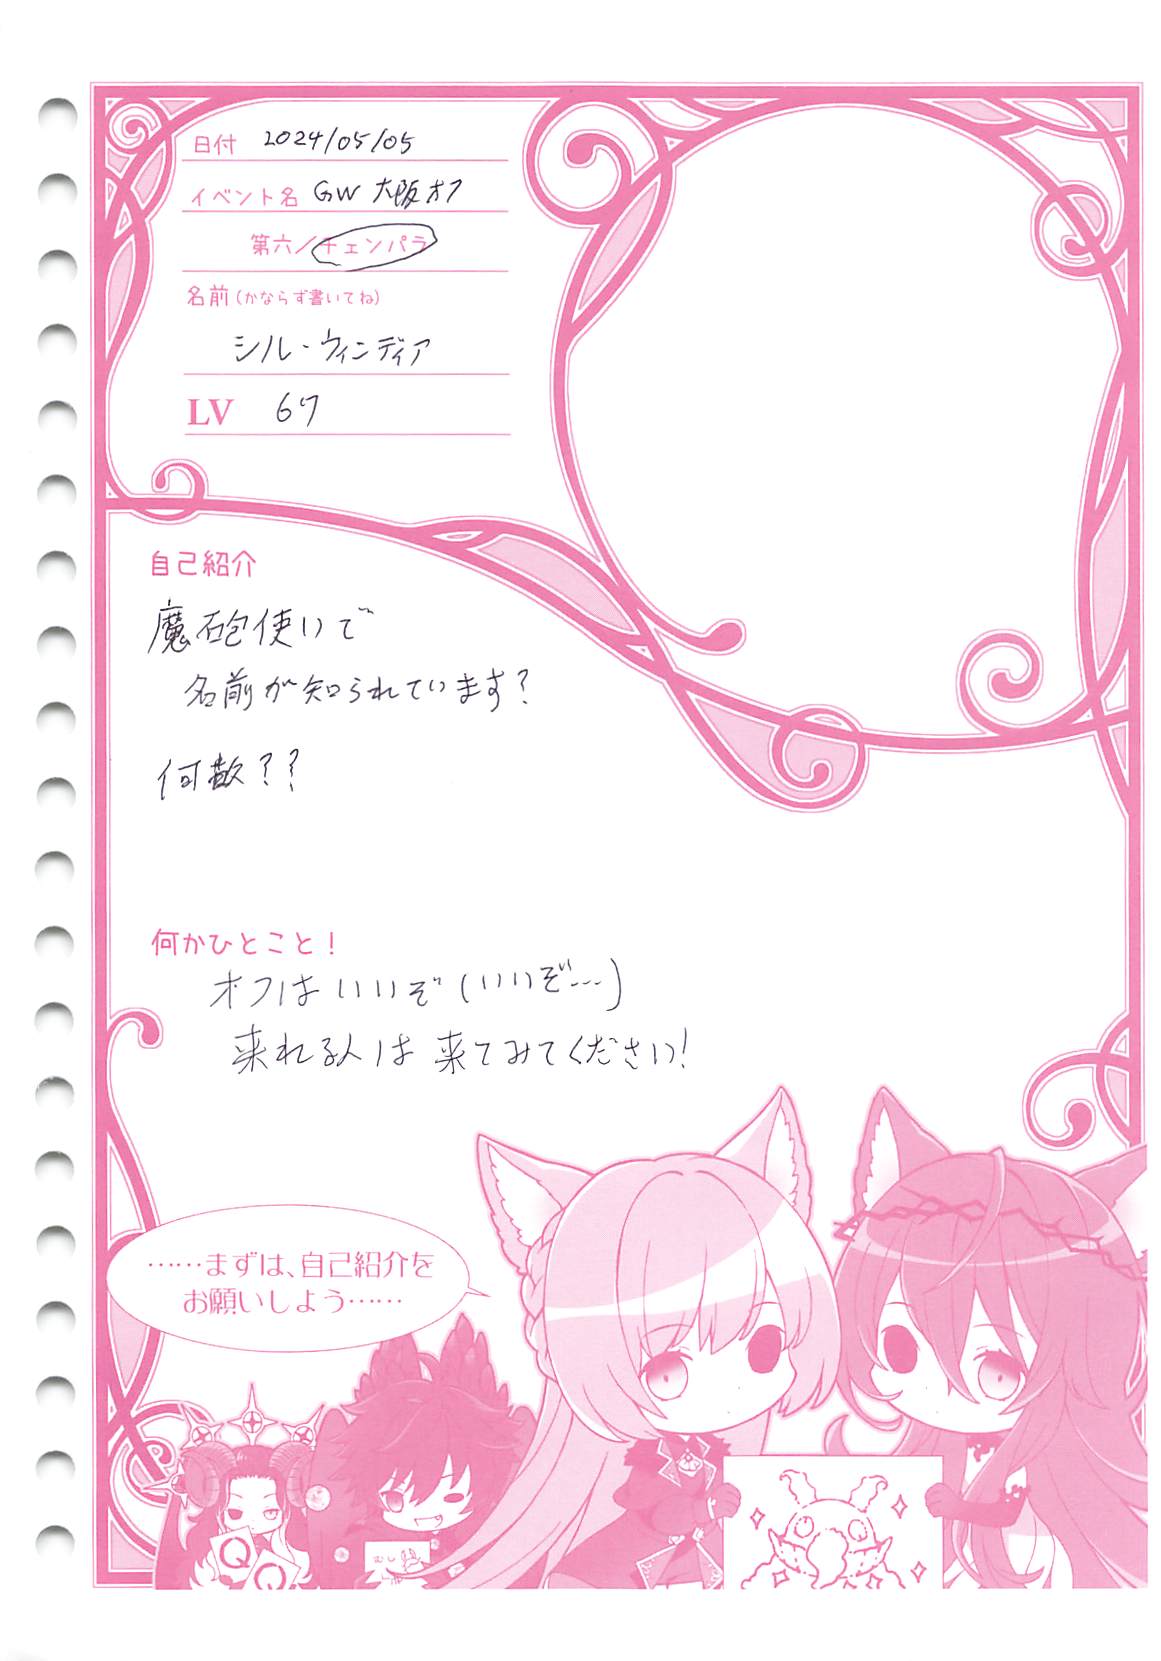 日付 2024/05/05
イベント名 GW 大阪オフ
第六/チェンパラ
名前(かならず書いてね)
シル・ウィンディア
LV 67
自己紹介
魔砲使いで
名前が知られています?
何故??
何かひとこと!
オフはいいぞ(いいぞ…)
来れる人は来てみてください!
……まずは、自己紹介を
お願いしよう……
Q
Q